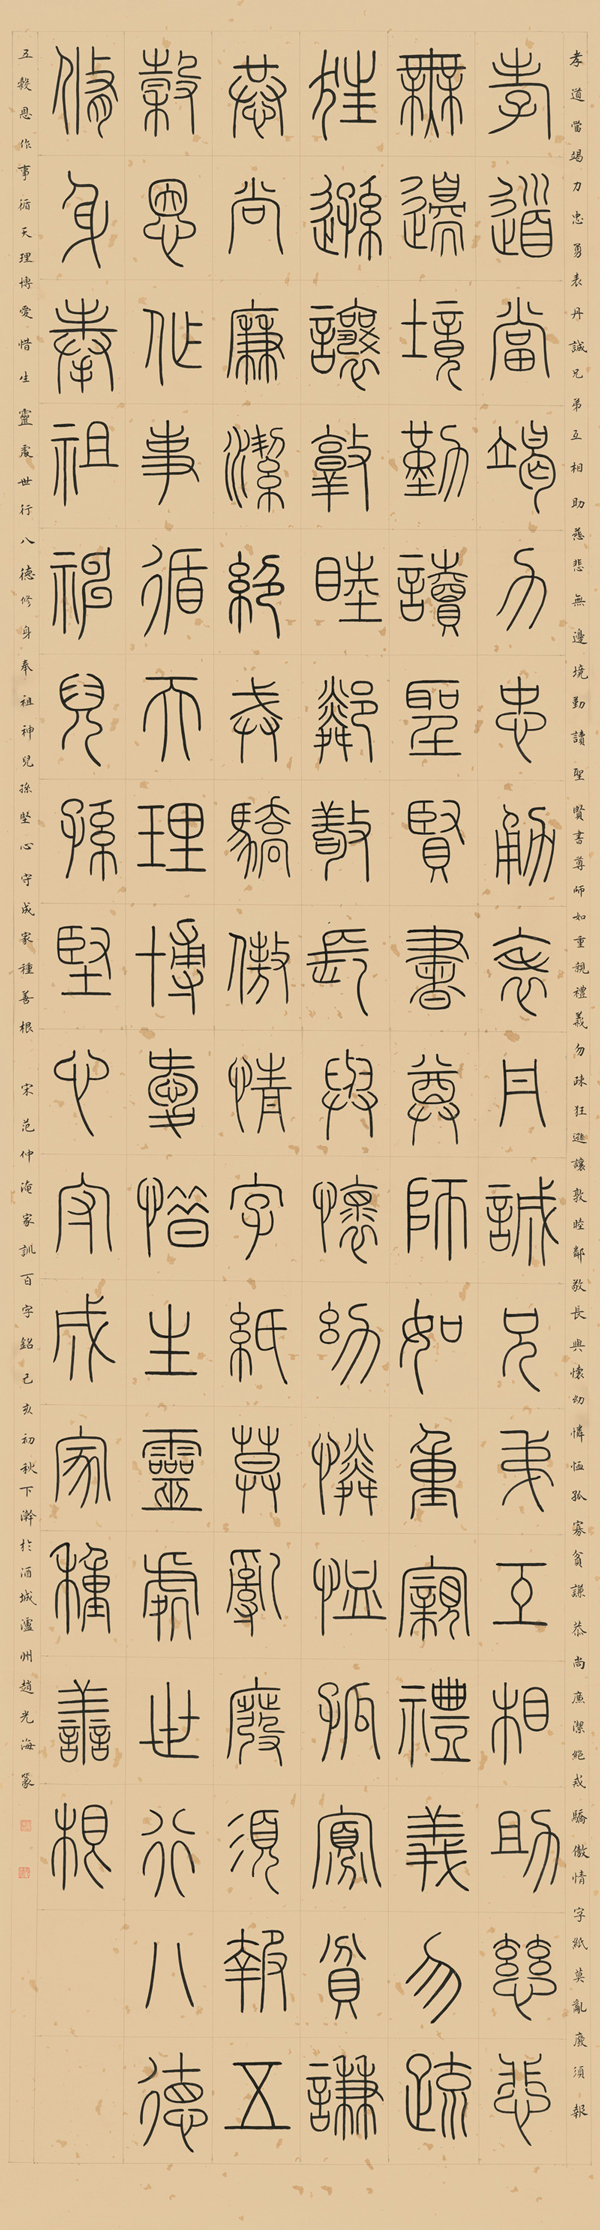 孝道當竭力忠勇表丹誠兄弟互相助慈悲無邊境勤讀聖賢書尊師如重親禮義勿疎狂遜讓敦睦鄰敬長與懷幼憐恤孤寡貧謙恭尚廉潔絕戒驕傲情字紙莫亂廢須報
孝道當竭力忠勇表丹誠兄弟互相助慈悲
無邊境勤讀聖賢書尊師如重親禮義勿疏
狂遜讓敦睦鄰敬長與懷幼憐恤孤寡貧謙
恭尚廉潔絕戒驕傲情字紙莫亂廢須報五
穀恩作事循天理博愛惜生靈處世行八德
修身奉祖神兒孫堅心守成家種善根
五穀恩作事循天理博愛惜生靈處世行八德修身奉祖神兒孫堅心守成家種善根 宋范仲淹家訓百字銘己亥初秋下澣於酒城瀘州趙光海篆